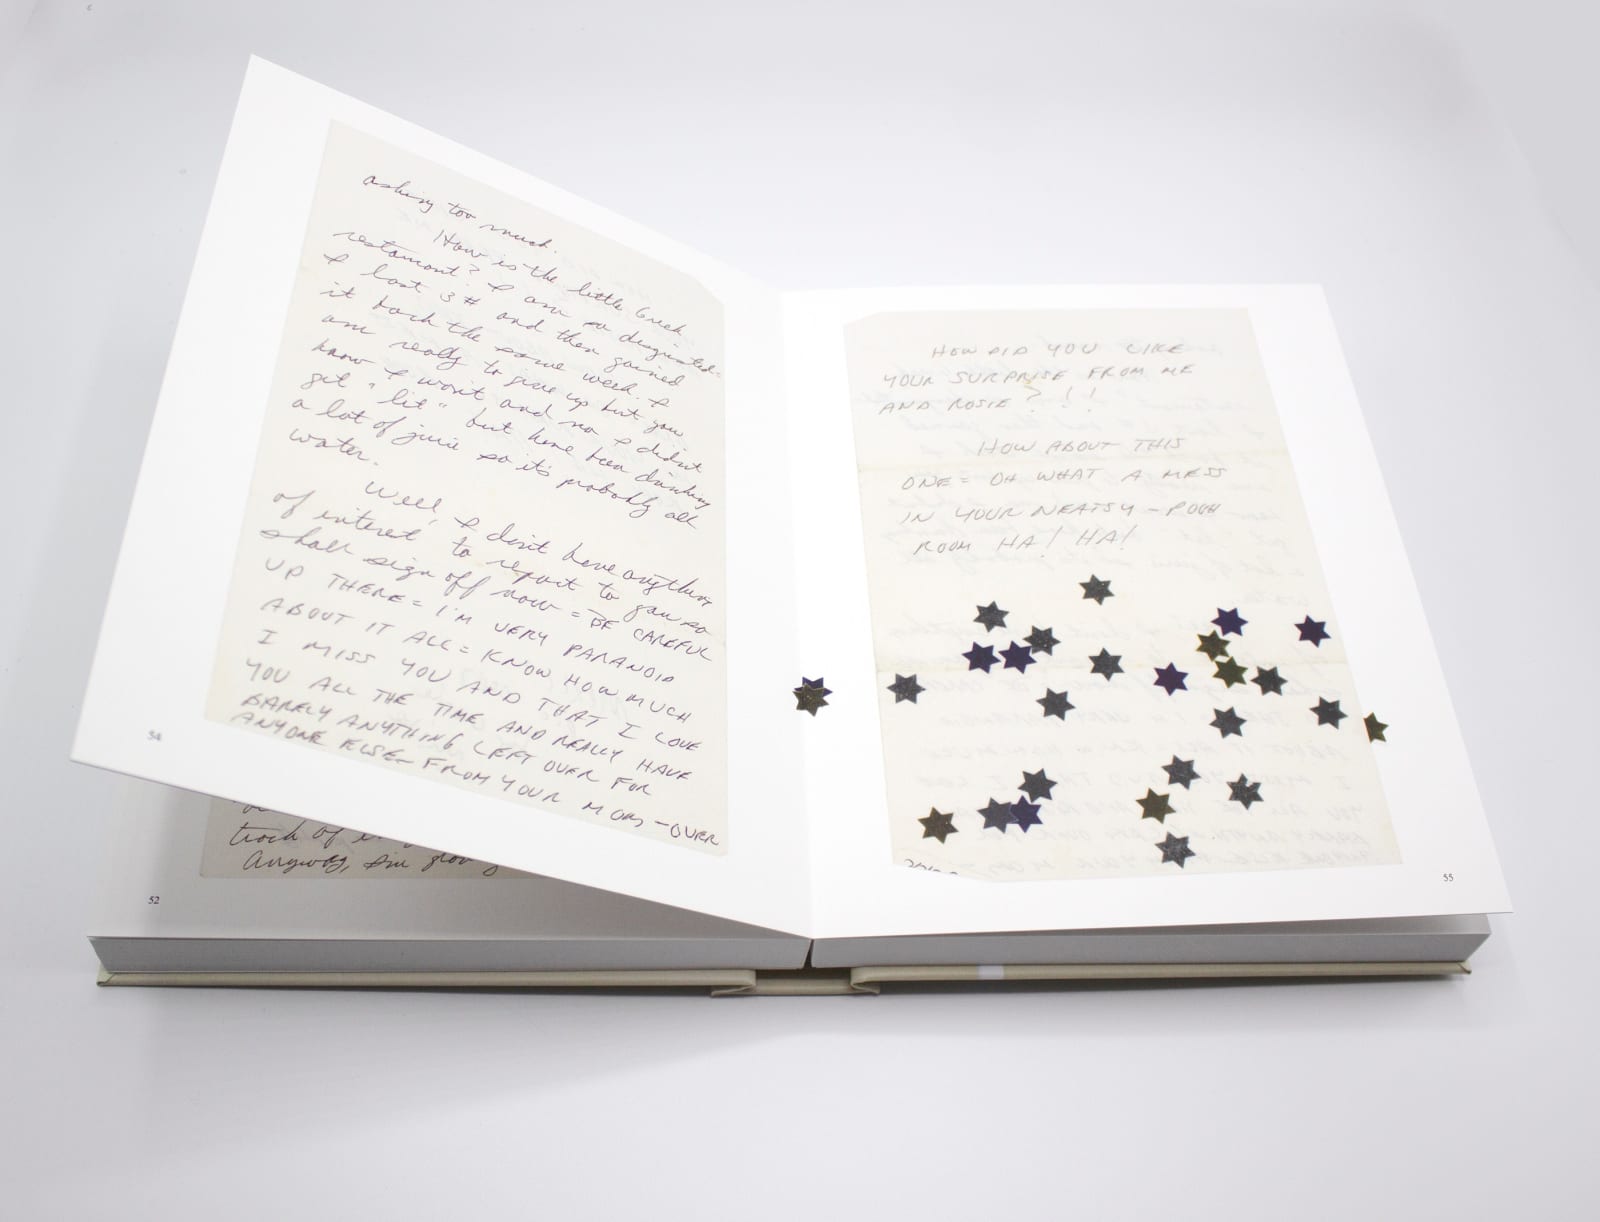 asking too much.
How is the little brick
restaurant? I am so disgusted=
I lost 3# and then gained
it back the same week. I
am ready to give up but you
know I won't and no I didn't
get "lit" but have been drinking
a lot of juice so it's probably all
water.
Well, I don't have anything
of interest to report to you so
shall sign off now = BE CAREFUL
UP THERE = I'M VERY PARANOID
ABOUT IT ALL = KNOW HOW MUCH
I MISS YOU AND THAT I LOVE
YOU ALL THE TIME AND REALLY HAVE
BARELY ANYTHING LEFT OVER FOR
ANYONE ELSE - FROM YOUR MOM - OVER
54
track of
Anyway, I'm
52
HOW DID YOU LIKE
YOUR SURPRISE FROM ME
AND ROSIE? !!
HOW ABOUT THIS
ONE = OH WHAT A MESS
IN YOUR NEATSY - POOH
ROOM HA! HA!
55